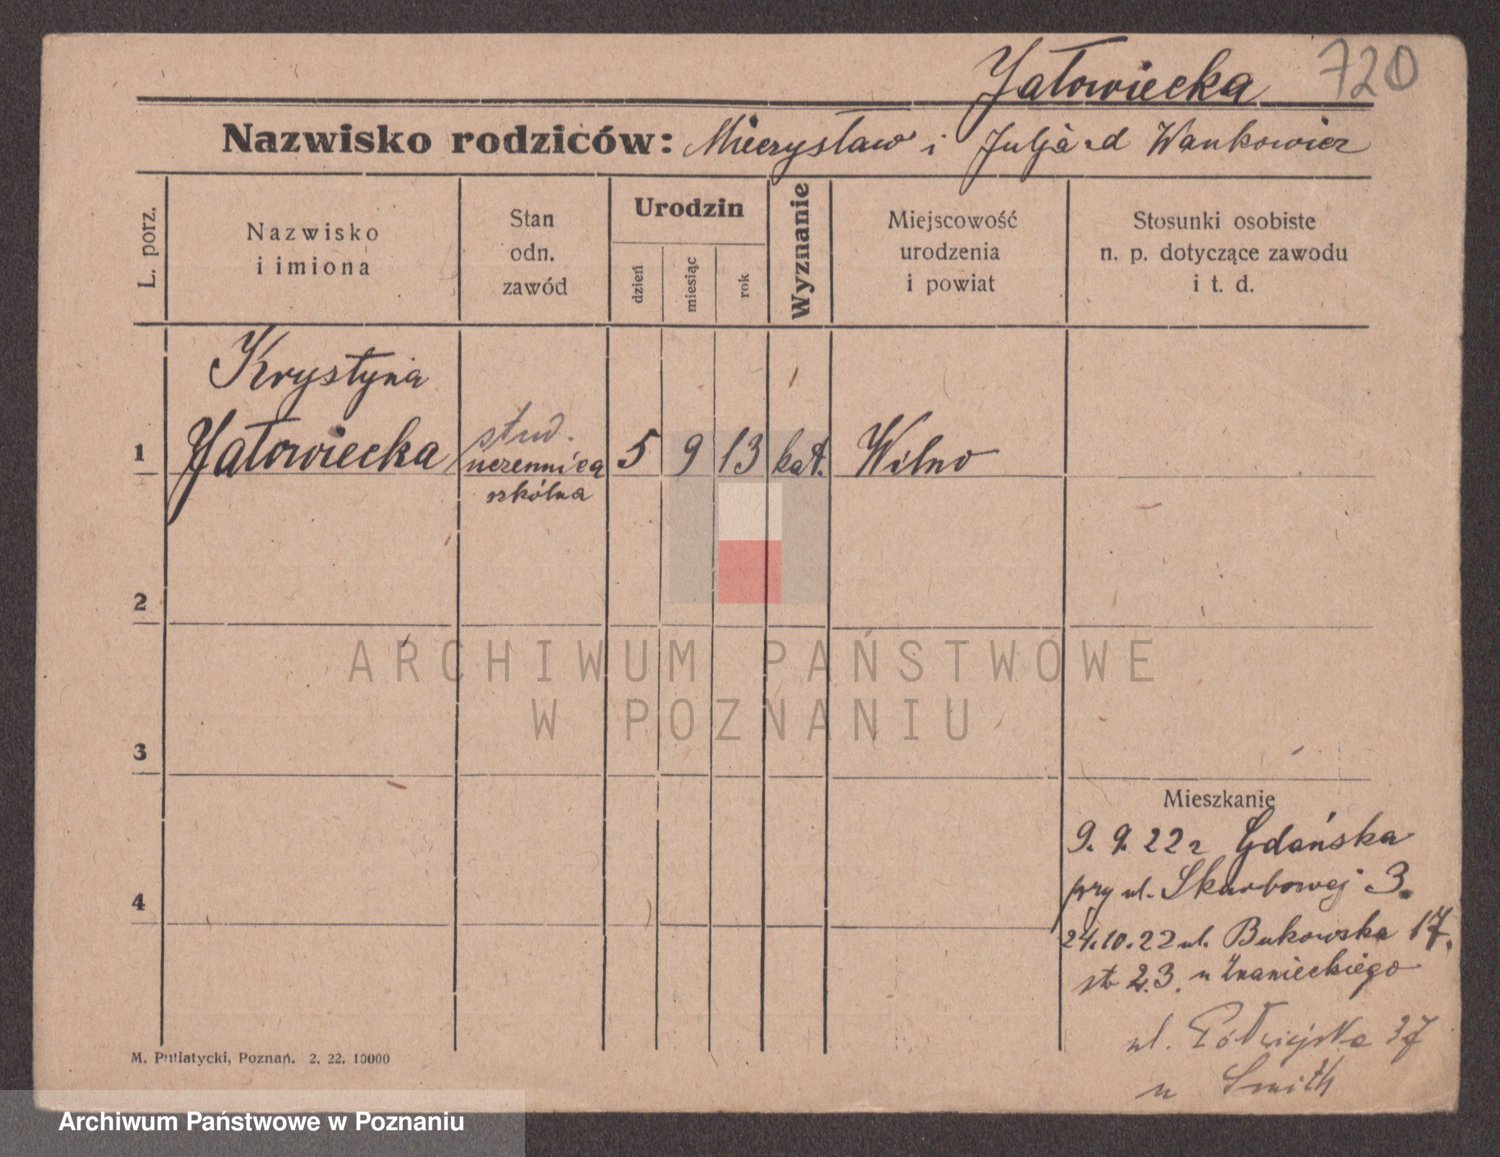 Jałowiecka 720
Nazwisko rodziców: Mieczysław i Julja z d Wankowicz
L. porz.
Nazwisko
i imiona
Stan
odn.
zawód
Urodzin
dzień
miesiąc
rok
Wyznanie
Miejscowość
urodzenia
i powiat
Stosunki osobiste
n. p. dotyczące zawodu
i t. d.
Krystyna
1 Jałowiecka stud. 5 9 13 kat. Wilno
uczennica
szkólna
2
ARCHIWUM PAŃSTWOWE
W POZNANIU
3
Mieszkanie
9. 9. 22 r Gdańska
przy ul. Skarbowej 3.
4
24.10.22 ul. Bukowska 17.
st 23. u Znanieckiego
ul. 37
u Smith
M. Putiatycki, Poznań. 2. 22. 10000
Archiwum Państwowe w Poznaniu